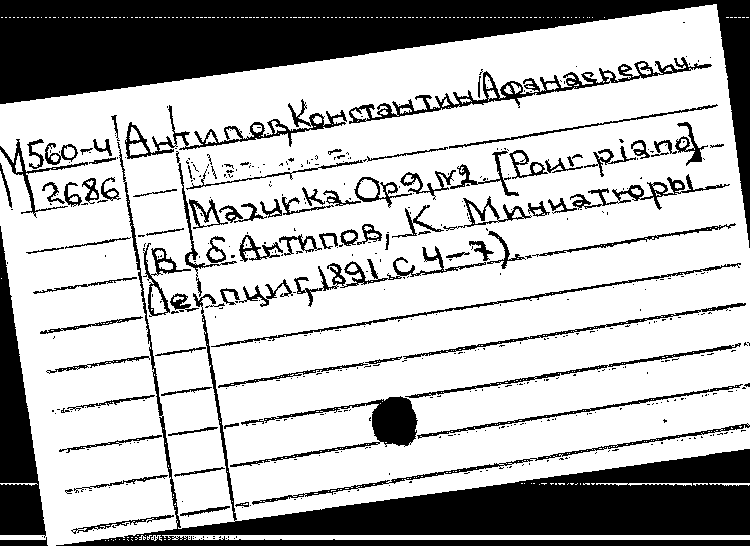 М560-4 Антипов, Константин Афанасьевич.
2686
Mazurka. Op 9, №2. [Pour piano]
(В сб. Антипов, К. Миниатюры
Лейпциг, 1891. с. 4–7).